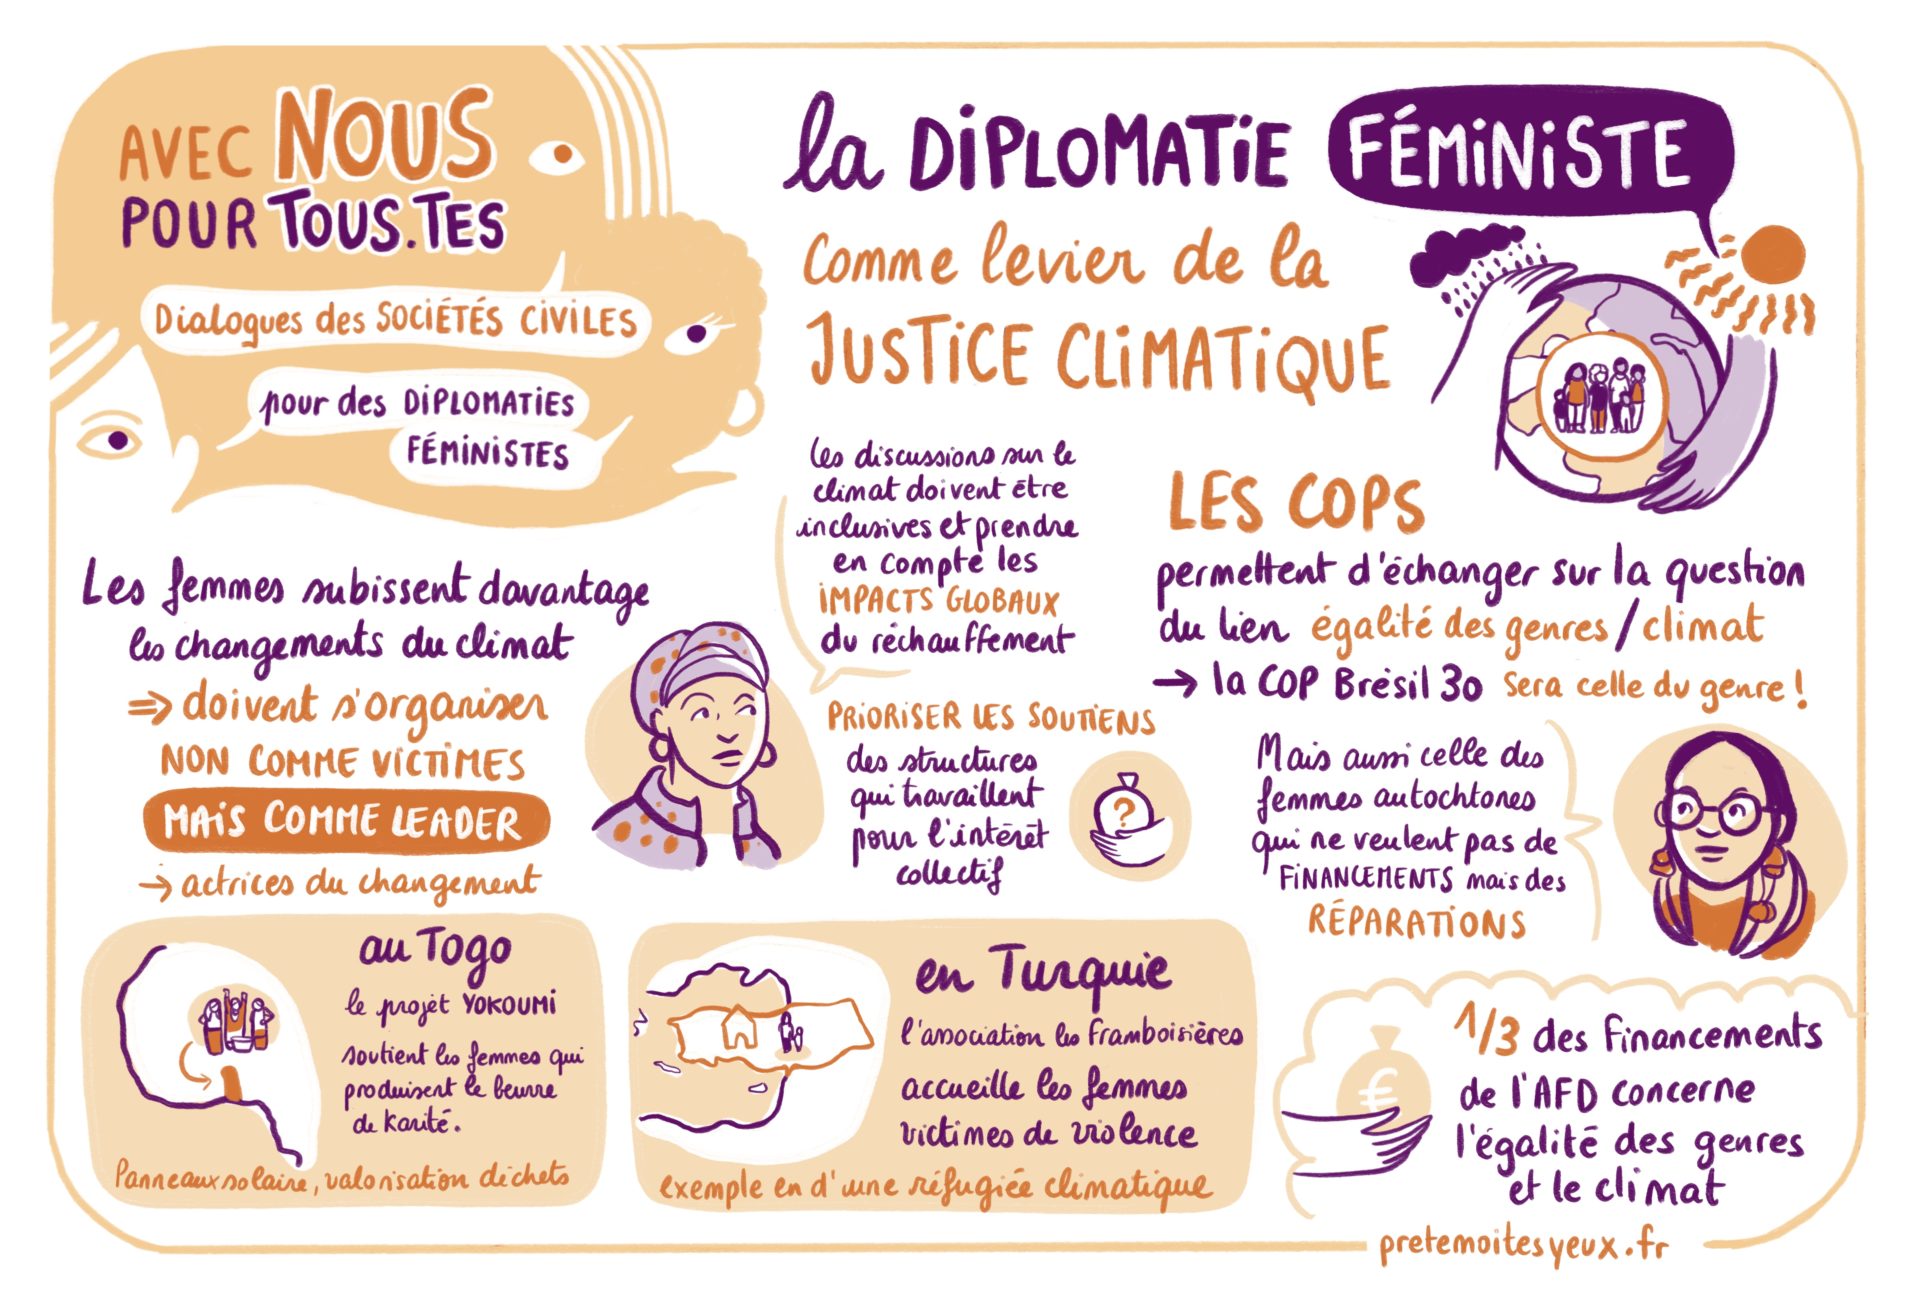 AVEC NOUS
POUR TOUS.TES
Dialogues des SOCIÉTÉS CIVILES
pour des DIPLOMATIES
FÉMINISTES
la DIPLOMATIE FÉMINISTE
comme levier de la
JUSTICE CLIMATIQUE
Les femmes subissent davantage
les changements du climat
⇒ doivent s'organiser
NON COMME VICTIMES
MAIS COMME LEADER
→ actrices du changement
les discussions sur le
climat doivent être
inclusives et prendre
en compte les
IMPACTS GLOBAUX
du réchauffement
PRIORISER LES SOUTIENS
des structures
qui travaillent
pour l'intérêt
collectif
?
LES COPS
permettent d'échanger sur la question
du lien égalité des genres / climat
→ la COP Brésil 30 sera celle du genre !
Mais aussi celle des
femmes autochtones
qui ne veulent pas de
FINANCEMENTS mais des
RÉPARATIONS
au Togo
le projet YOKOUMI
soutient les femmes qui
produisent le beurre
de karité.
Panneaux solaire, valorisation déchets
en Turquie
l'association les framboisières
accueille les femmes
victimes de violence
exemple en d'une réfugiée climatique
€
1/3 des financements
de l'AFD concerne
l'égalité des genres
et le climat
pretemoitesyeux.fr